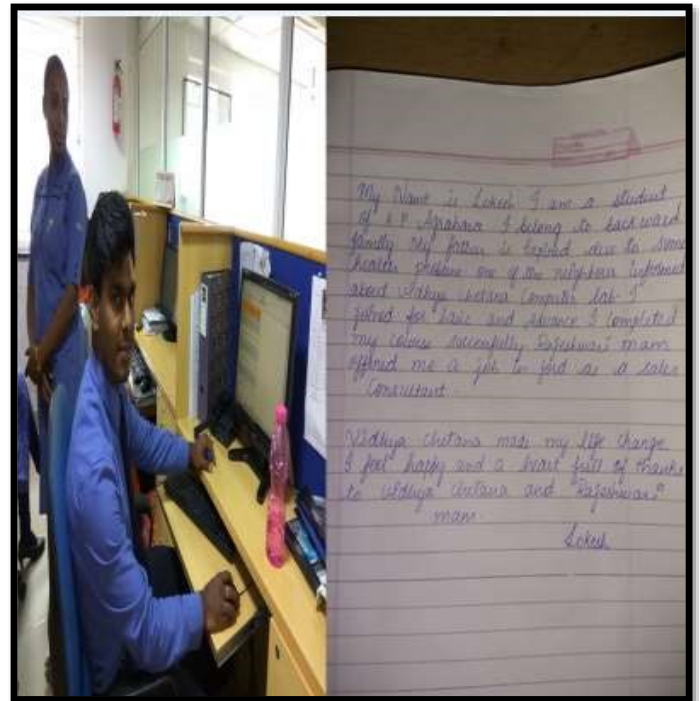 My Name is Lokesh I am a student
of K.P. Agrahara I belong to backward
family My father is expired due to some
health problem one of the neighbour informed
about Vidhya chetana Computer lab. I
joined for basic and advance I completed
my course successfully Rajeshwari mam
offered me a job to join as a sales
Consultant.
Vidhya chetana made my life change
I feel happy and a heart full of thanks
to Vidhya chetana and Rajeshwari
mam.
Lokesh